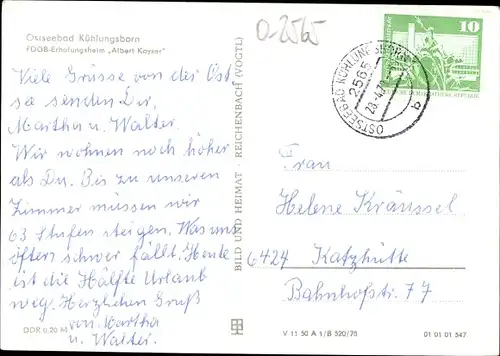 Ostseebad Kühlungsborn
FDGB-Erholungsheim „Albert Kayser"
0-2565
10
DEMOKRATISCHE REPUBLIK
OSTSEEBAD KÜHLUNGSBORN
2565
28.4.
b
Viele Grüsse von der Ost
see senden Dir,
Martha u. Walter.
Wir wohnen noch höher
als Du. Bis zu unseren
Zimmer müssen wir
63 Stufen steigen. Was uns
öfters schwer fällt. Heute
ist die Hälfte Urlaub
weg. Herzlichen Gruß
von Martha
u. Walter.
DDR 0,20 M
BILD UND HEIMAT REICHENBACH (VOGTL)
Frau
Helene Kräussel
6424 Katzhütte
Bahnhofstr. 77
V 11 50 A 1/B 520/76
01 01 01 547